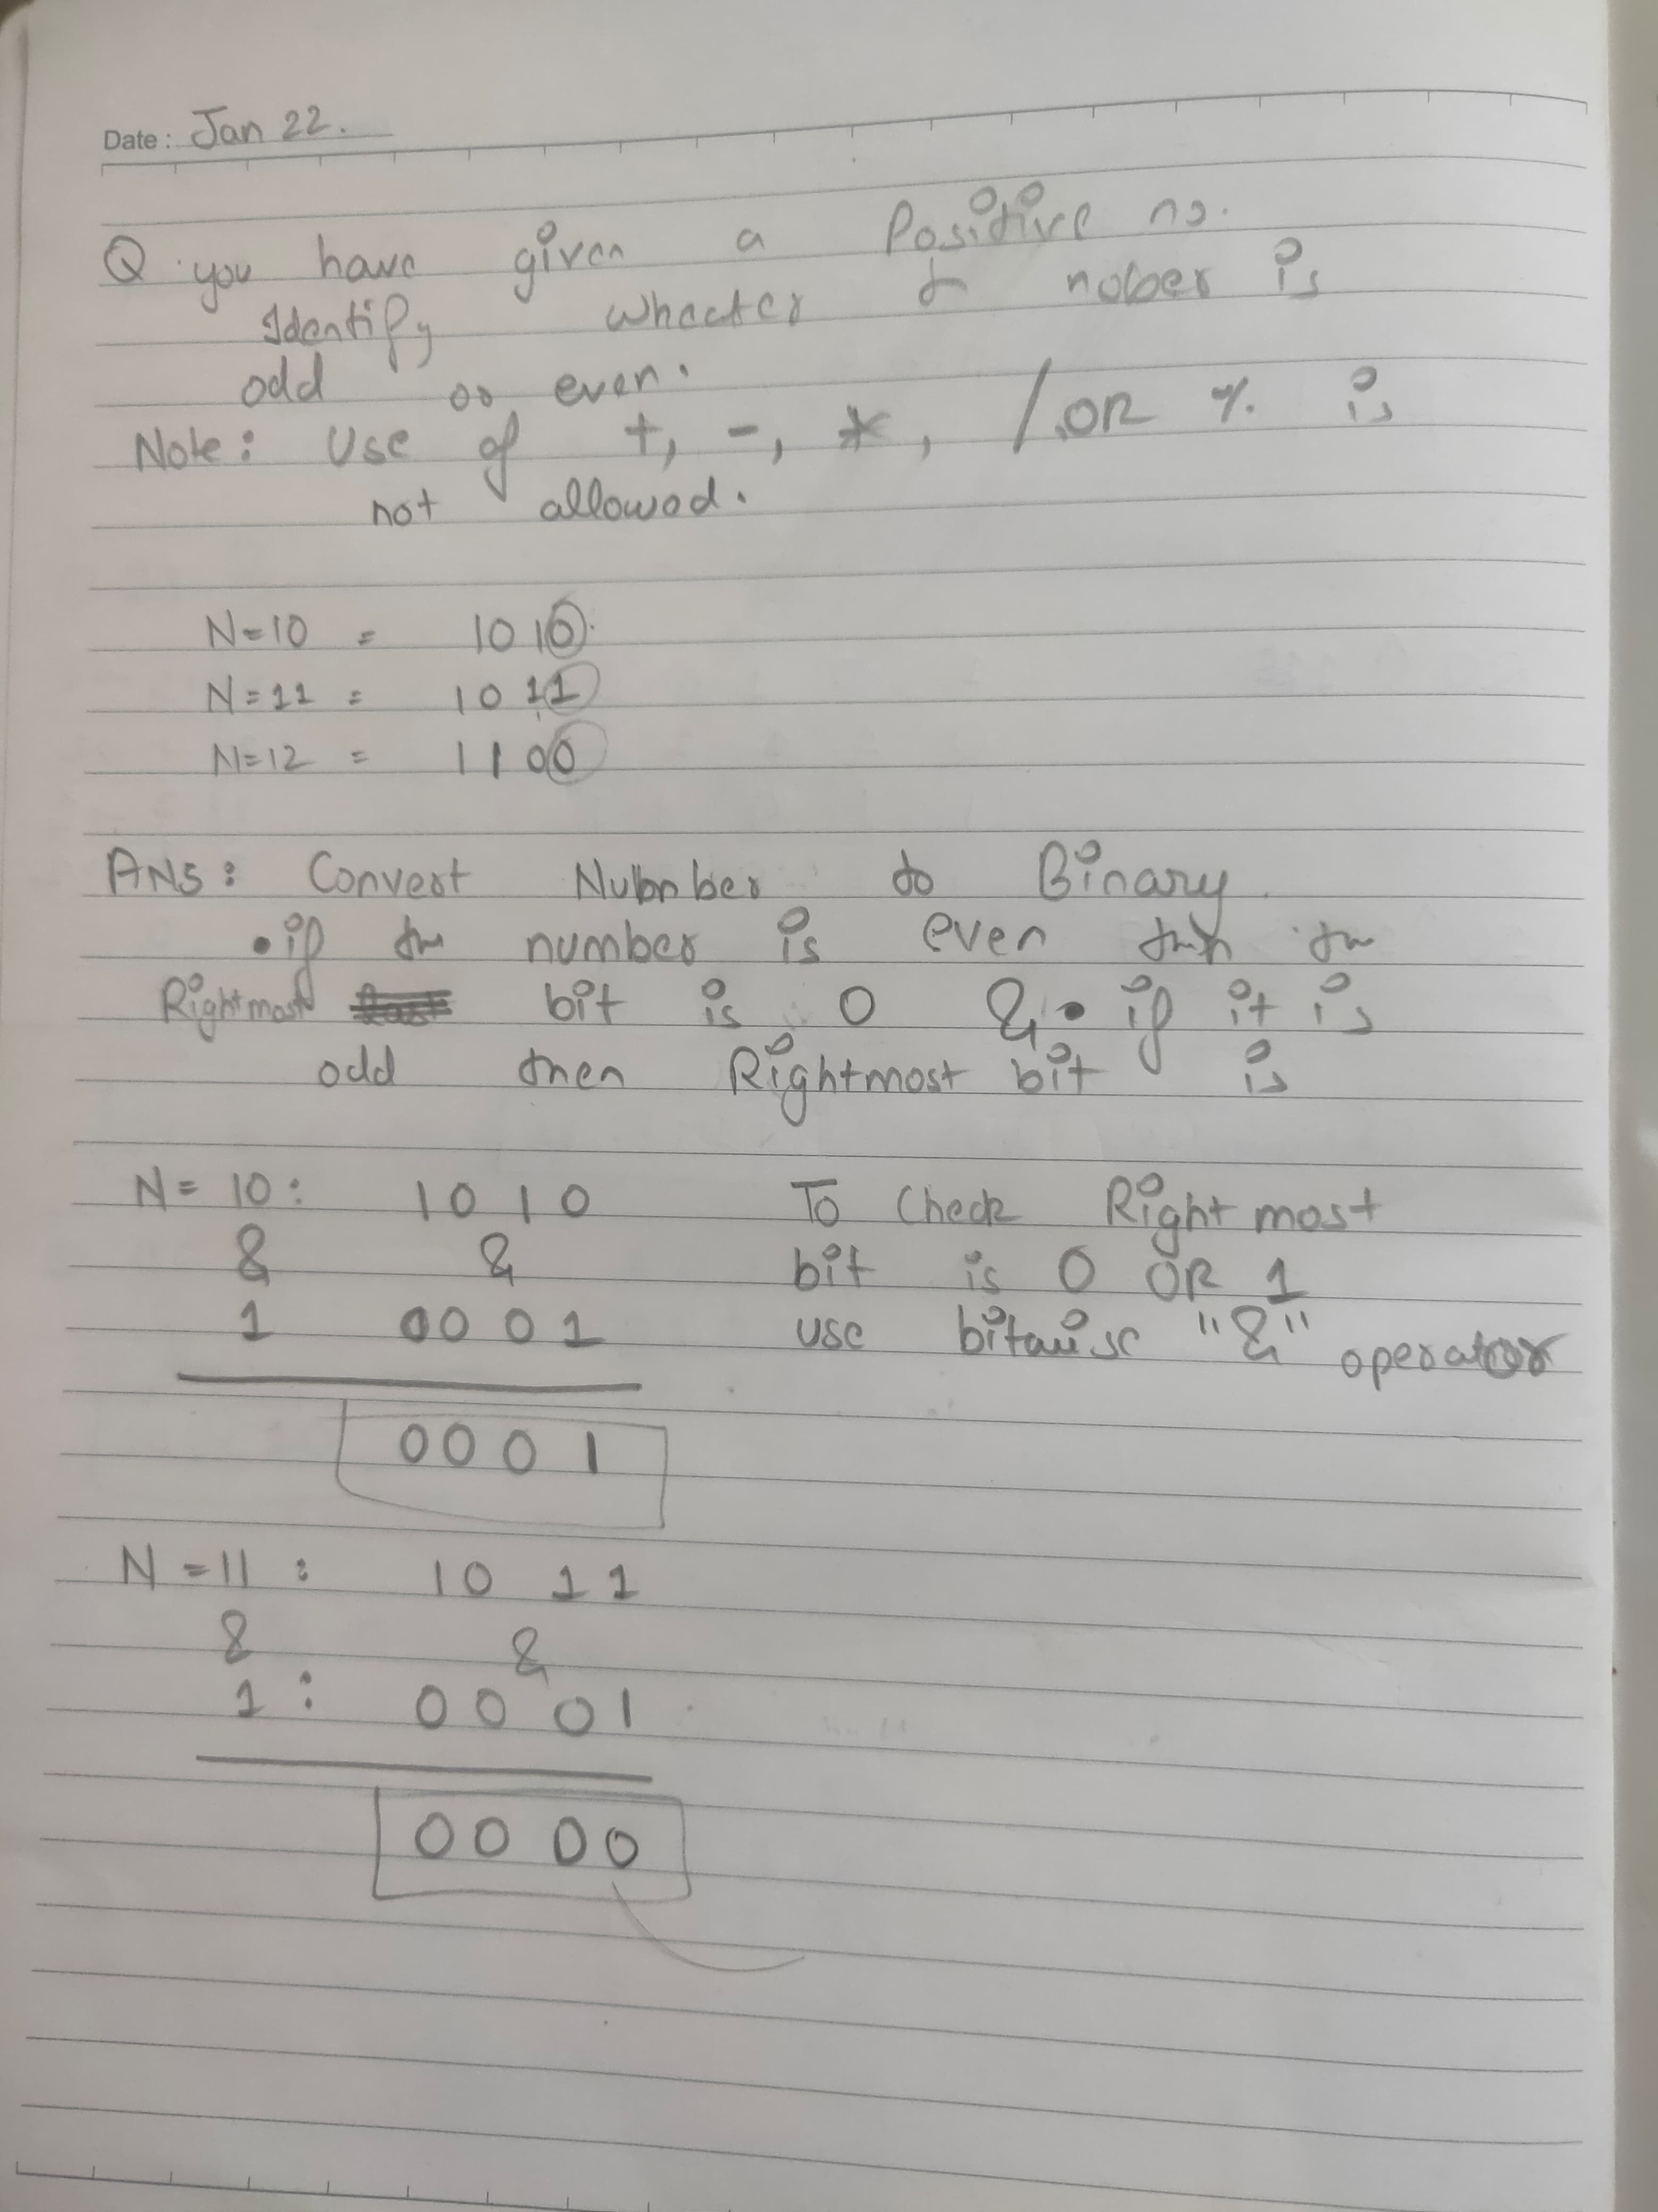 Date: Jan 22.
Q. you have given a Positive no.
Identify whaeter & nober is
odd or even.
Note: Use of +, -, *, / OR % is
not allowed.
N=10 = 1010
N=11 = 1011
N=12 = 1100
ANS: Convert Number to Binary
• if the number is even then the
Rightmost bit is 0 & • if it is
odd then Rightmost bit is
N= 10: 1010 To Check Rightmost
& & bit is 0 OR 1
1 0001 use bitwise "&" operator
0001
N=11 : 1011
& &
1 : 0001
0000